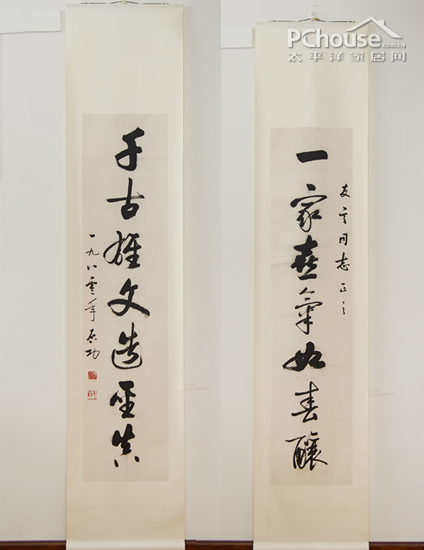 PChouse
.com.cn
太平洋家居网
一家憙氣如春釀
友同志正之
千古雄文造聖真
一九八零年启功